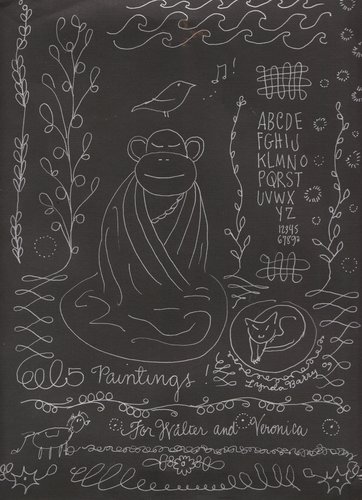 ABCDE
FGHIJ
KLMNO
PQRST
UVWX
YZ
12345
67890
5 Paintings!
Lynda Barry 09
For Walter and Veronica